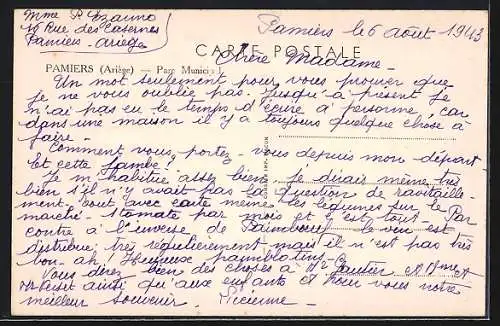 Mme P Izauno
10 Rue des Casernes
Pamiers - Ariège
Pamiers le 6 Août 1943
CARTE POSTALE
Chère Madame -
PAMIERS (Ariège) — Parc Munici
Un mot seulement pour vous prouver que
je ne vous oublie pas. Jusqu'à présent je
n'ai pas eu le temps d'écrire à personne, car
dans une maison il y a toujours quelque chose à
faire -
Comment vous portez-vous depuis mon départ
Et cette jambe?
Je m'habitue assez bien je dirais même très
bien s'il n'y avait pas la question de ravitaille-
ment - tout avec carte même les légumes sur le
marché - 1 tomate par mois et c'est tout - Par
contre à l'inverse de le vin est
distribué très régulièrement mais il n'est pas très
bon - ah! Heureux
Vous direz bien des choses à Gautier et
ainsi qu'aux enfants et pour vous notre
meilleur souvenir -